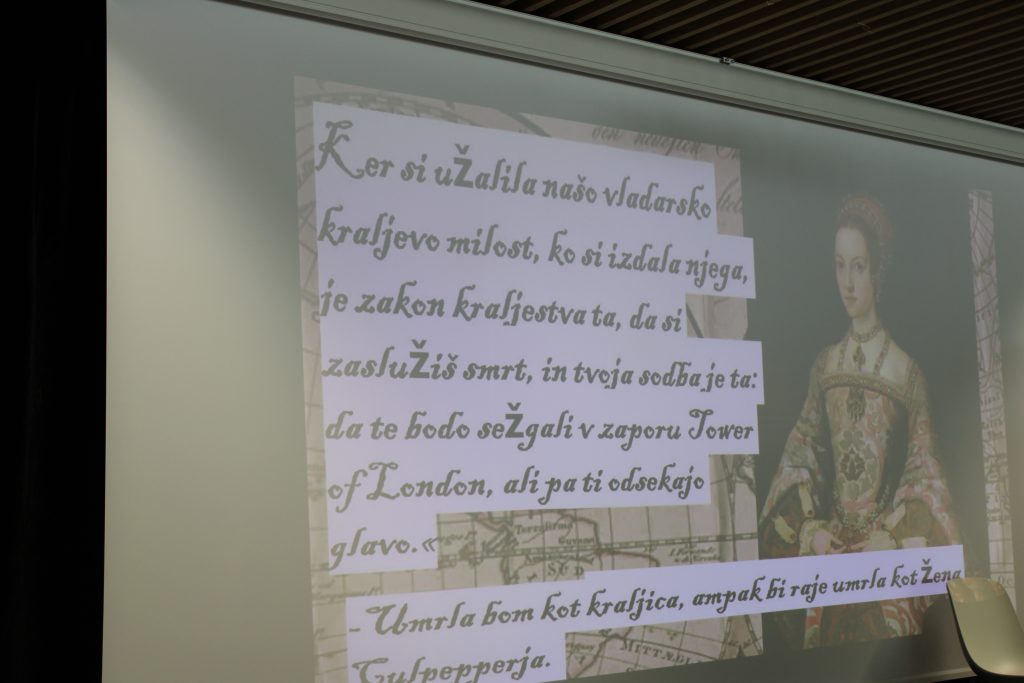 Ker si užalila našo vladarsko
kraljevo milost, ko si izdala njega,
je zakon kraljestva ta, da si
zaslužiš smrt, in tvoja sodba je ta:
da te bodo sežgali v zaporu Tower
of London, ali pa ti odsekajo
glavo.«
- Umrla bom kot kraljica, ampak bi raje umrla kot žena
Culpepperja.
Terra firma
SUD
MITTÆGI